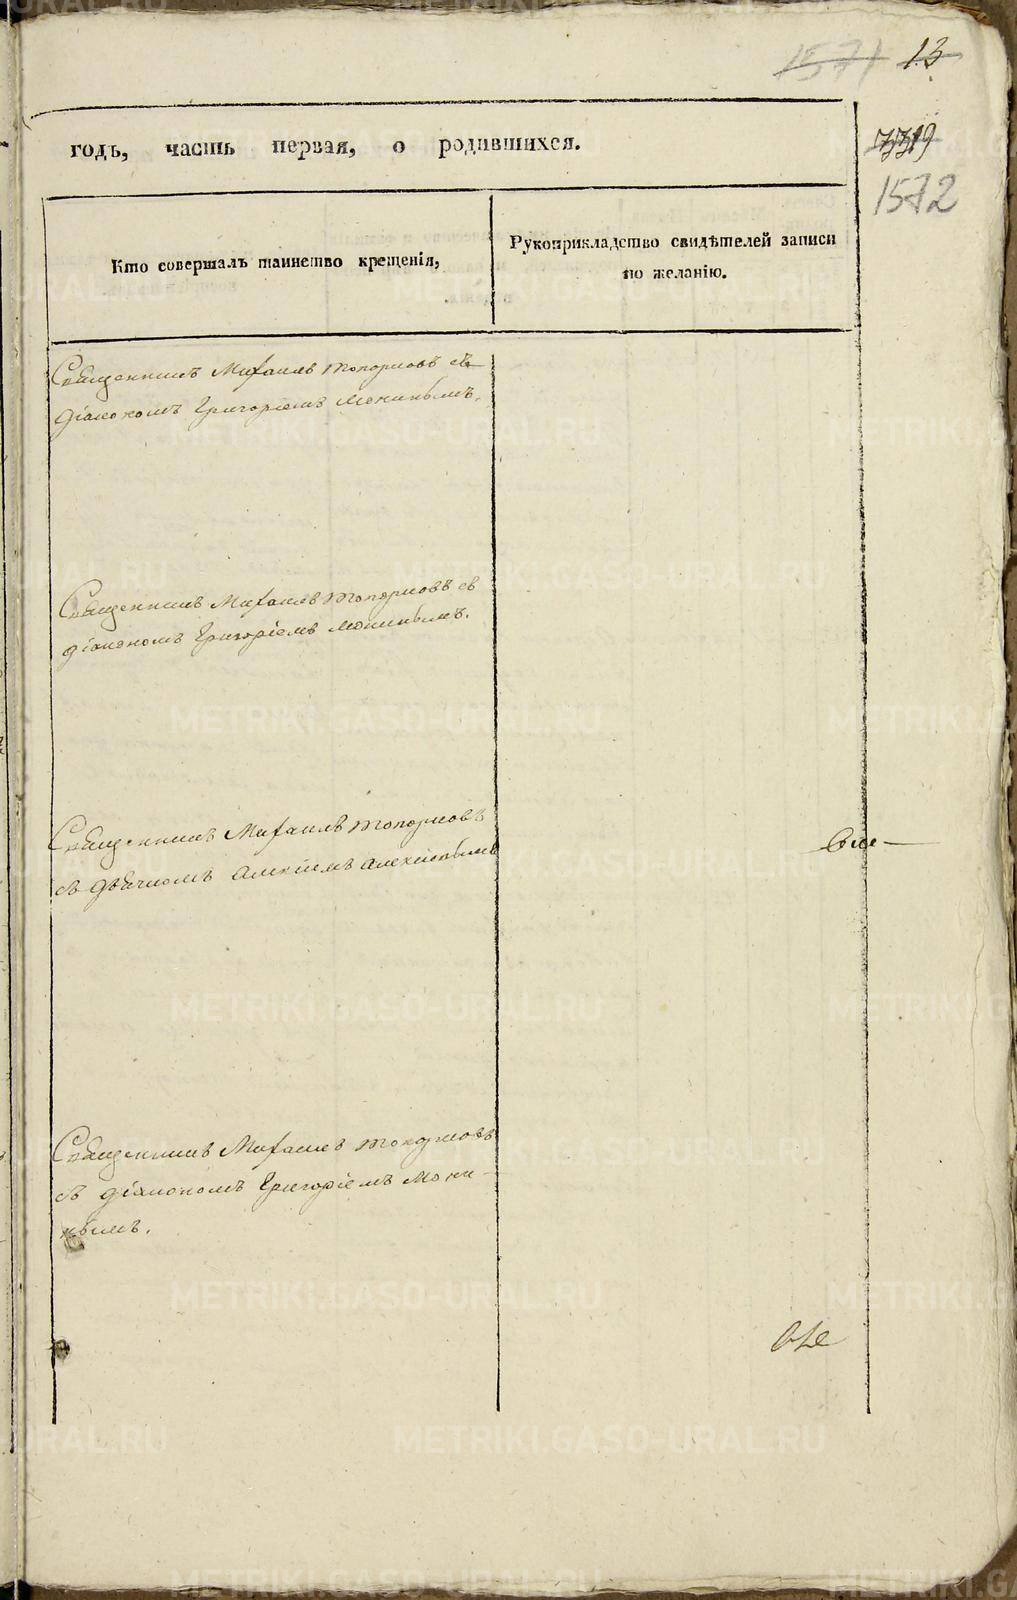 1571 13
7319
1572
годъ, часть первая, о родившихся.
Кто совершалъ таинство крещенія,
Рукоприкладство свидѣтелей записи
по желанію.
Священникъ Михаилъ Топорковъ съ
діакономъ Григоріемъ
Священникъ Михаилъ Топорковъ съ
діакономъ Григоріемъ
Священникъ Михаилъ Топорковъ
съ дьячкомъ Алексіемъ
Священникъ Михаилъ Топорковъ
съ діакономъ Григоріемъ
METRIKI.GASO-URAL.RU